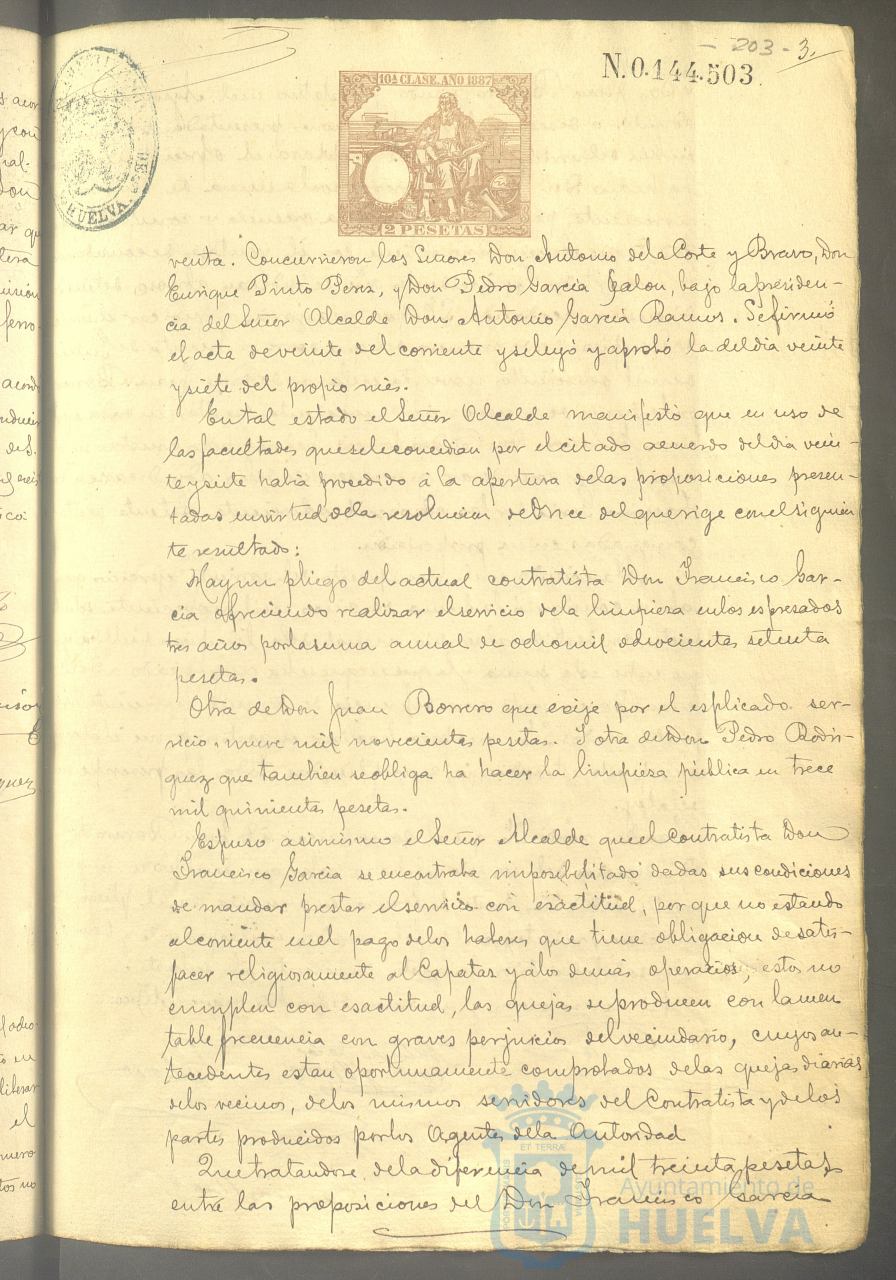 - 203 - 3.
N.0.144.503
10ª CLASE. AÑO 1887
2 PESETAS
HUELVA
venta. Concurrieron los Señores Don Antonio dela Corte y Bravo, Don
Enrique Pinto Perez, y Don Pedro Garcia Jalon, bajo la presiden-
cia del Señor Alcalde Don Antonio Garcia Ramos. Se firmó
el acta de veinte del corriente y se leyó y aprobó la del dia veinte
y siete del propio mes.
En tal estado el Señor Alcalde manifestó que en uso de
las facultades que se le concedian por el citado acuerdo del dia vein-
te y siete habia procedido á la apertura delas proposiciones presen-
tadas en virtud dela resolucion de Once del que rige con el siguien
te resultado:
Hay un pliego del actual contratista Don Francisco Gar-
cia ofreciendo realizar el servicio dela limpieza en los espresados
tres años por la suma annual de ocho mil ochocientas setenta
pesetas.
Otra de Don Juan Borrero que exije por el esplicado ser-
vicio, nueve mil novecientas pesetas. Y otra de Don Pedro Rodri-
guez que tambien se obliga ha hacer la limpieza pública en trece
mil quinientas pesetas.
Espuso asimismo el Señor Alcalde que el Contratista Don
Francisco Garcia se encontraba imposibilitado dadas sus condiciones
de mandar prestar el servicio con esactitud, por que no estando
al corriente en el pago delos haberes que tiene obligacion de satis-
facer religiosamente al Capataz y álos demás operarios, estos no
cumplen con esactitud, las quejas se producen con lamen
table frecuencia con graves perjuicios del vecindario, cuyos an-
tecedentes estan oportunamente comprobados delas quejas diarias
delos vecinos, delos mismos servidores del Contratista y delos
partes producidos por los Agentes dela Autoridad
Que tratandose dela diferencia de mil treinta pesetas
entre las proposiciones del Don Francisco Garcia
Ayuntamiento de
HUELVA